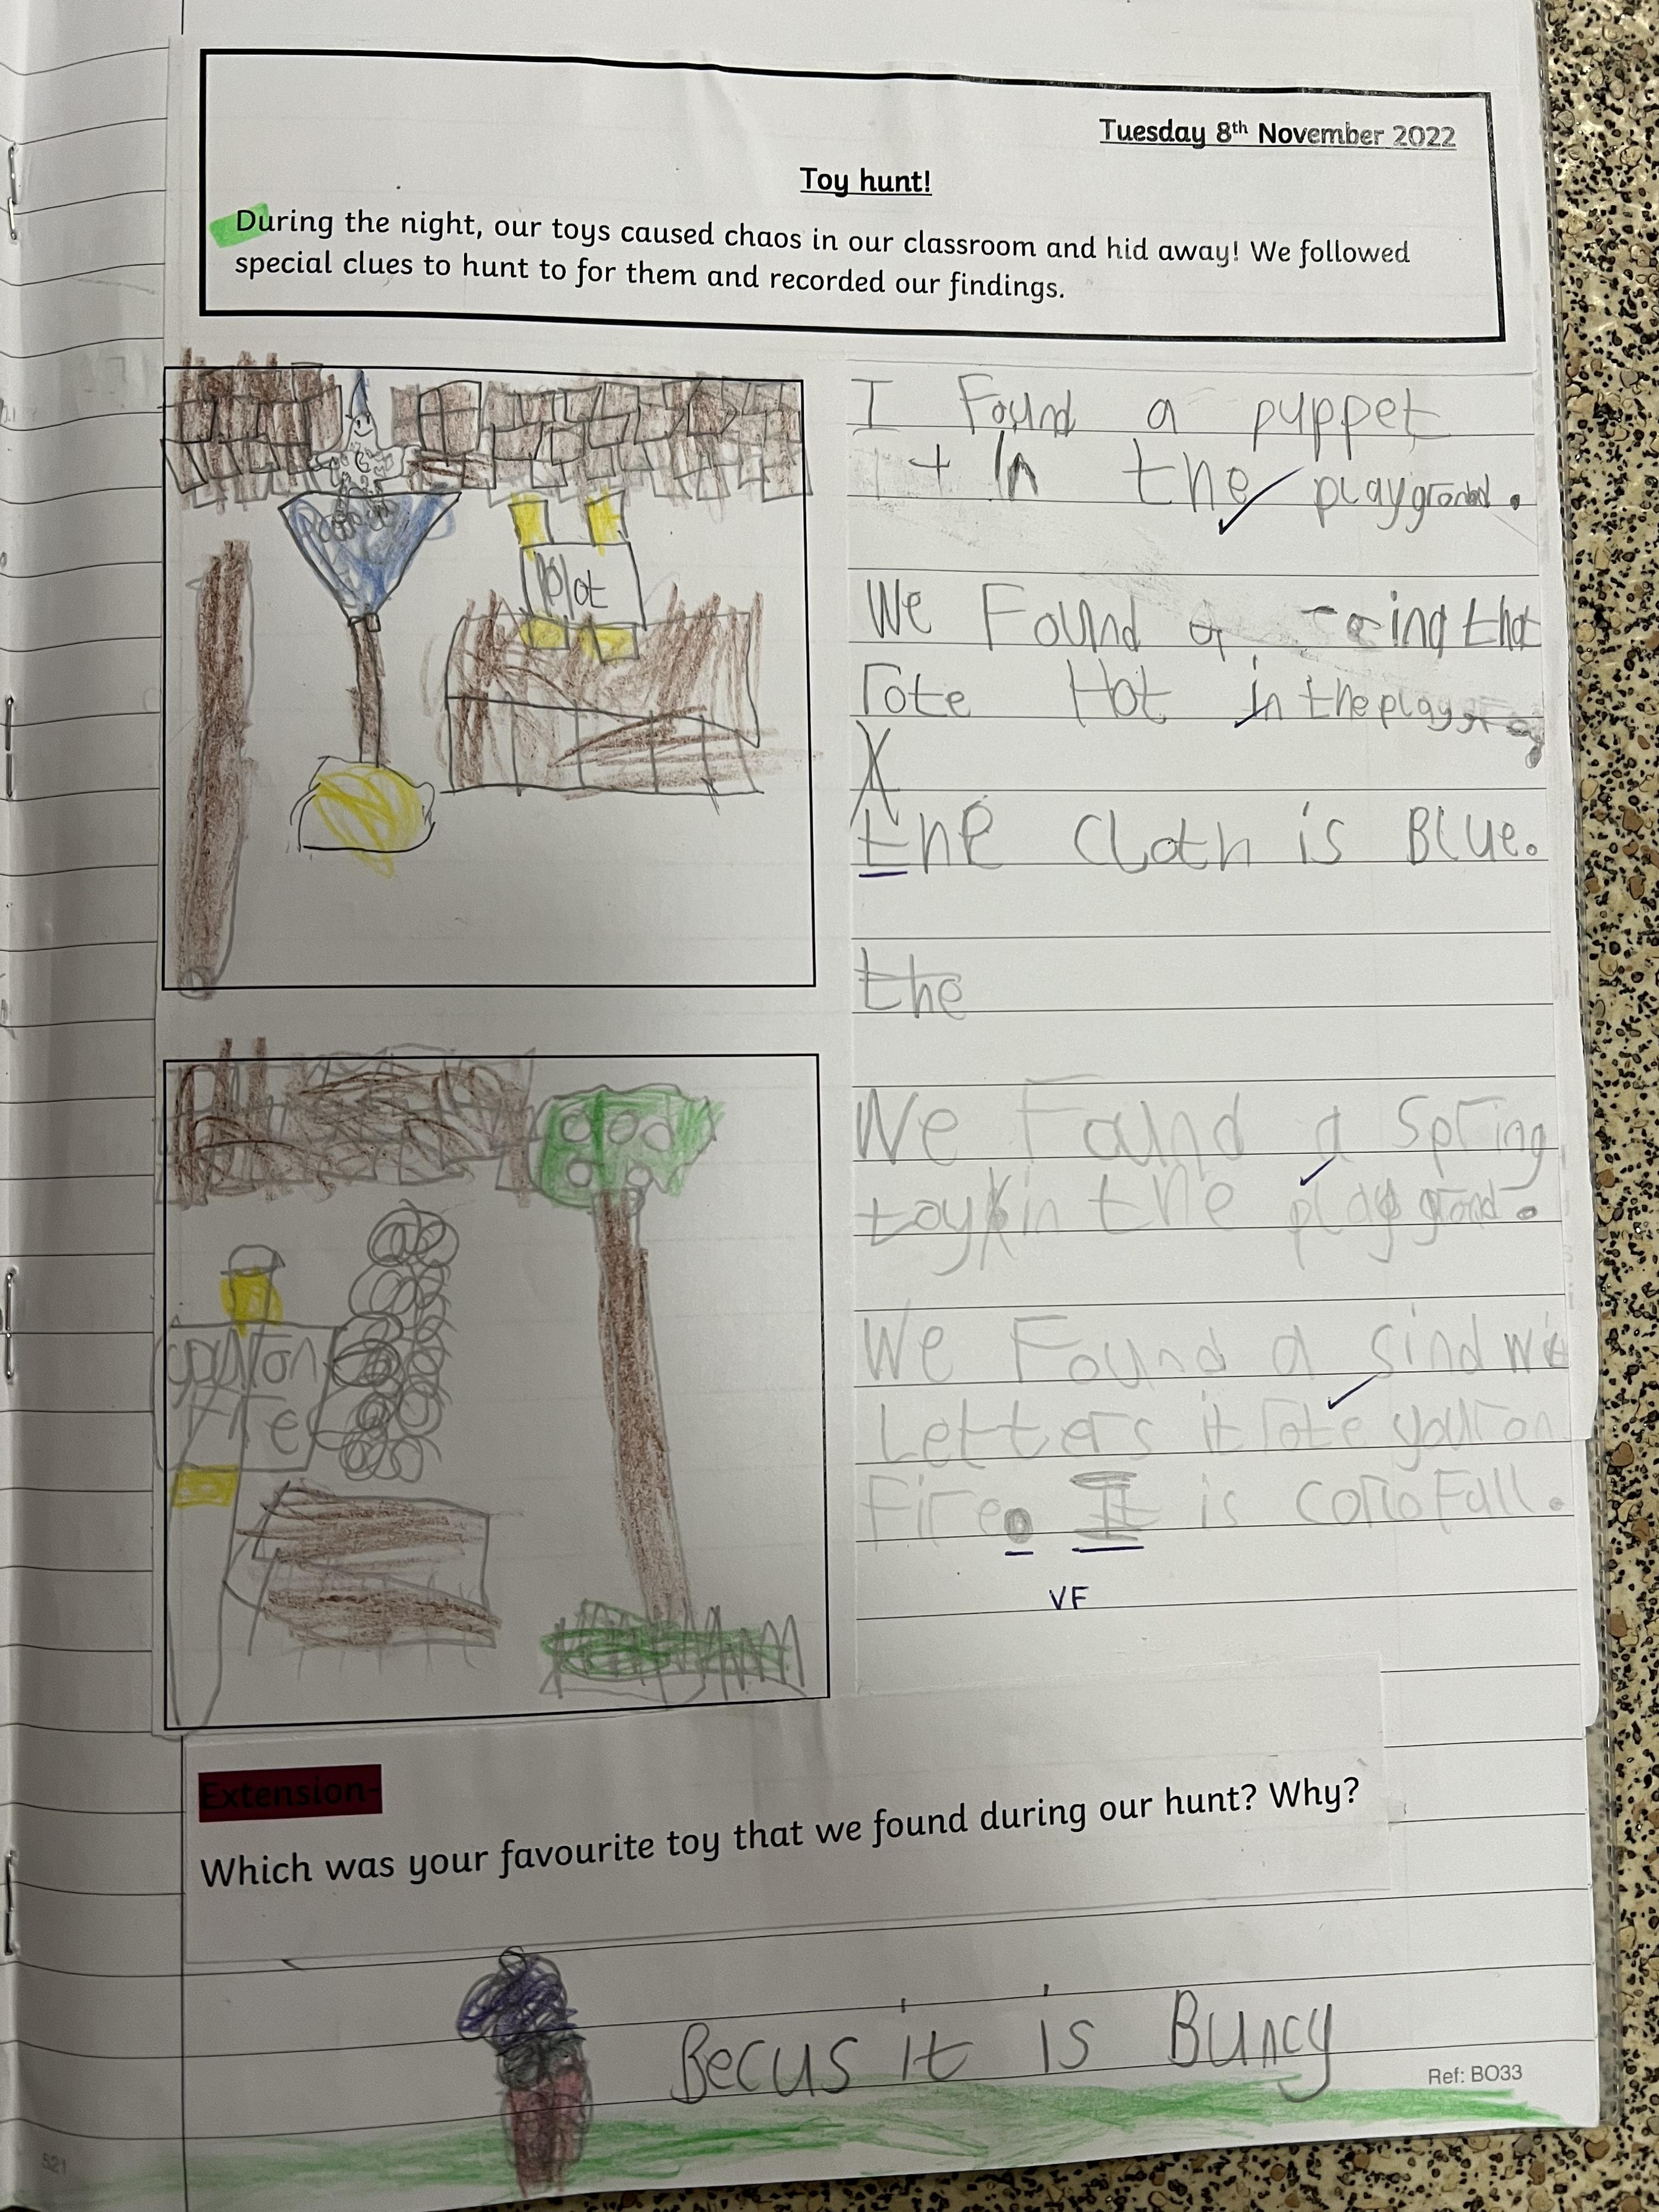 Tuesday 8th November 2022
Toy hunt!
During the night, our toys caused chaos in our classroom and hid away! We followed
special clues to hunt to for them and recorded our findings.
I Found a puppet
In the playground.
We Found a that
rote Hot in the
the Cloth is Blue.
the
We Faund a Spring
toy in the playground.
We Found a
Letters it rote your on
Fire. It is coroFall.
VF
Extension-
Which was your favourite toy that we found during our hunt? Why?
Becus it is Buncy
Ref: BO33
521